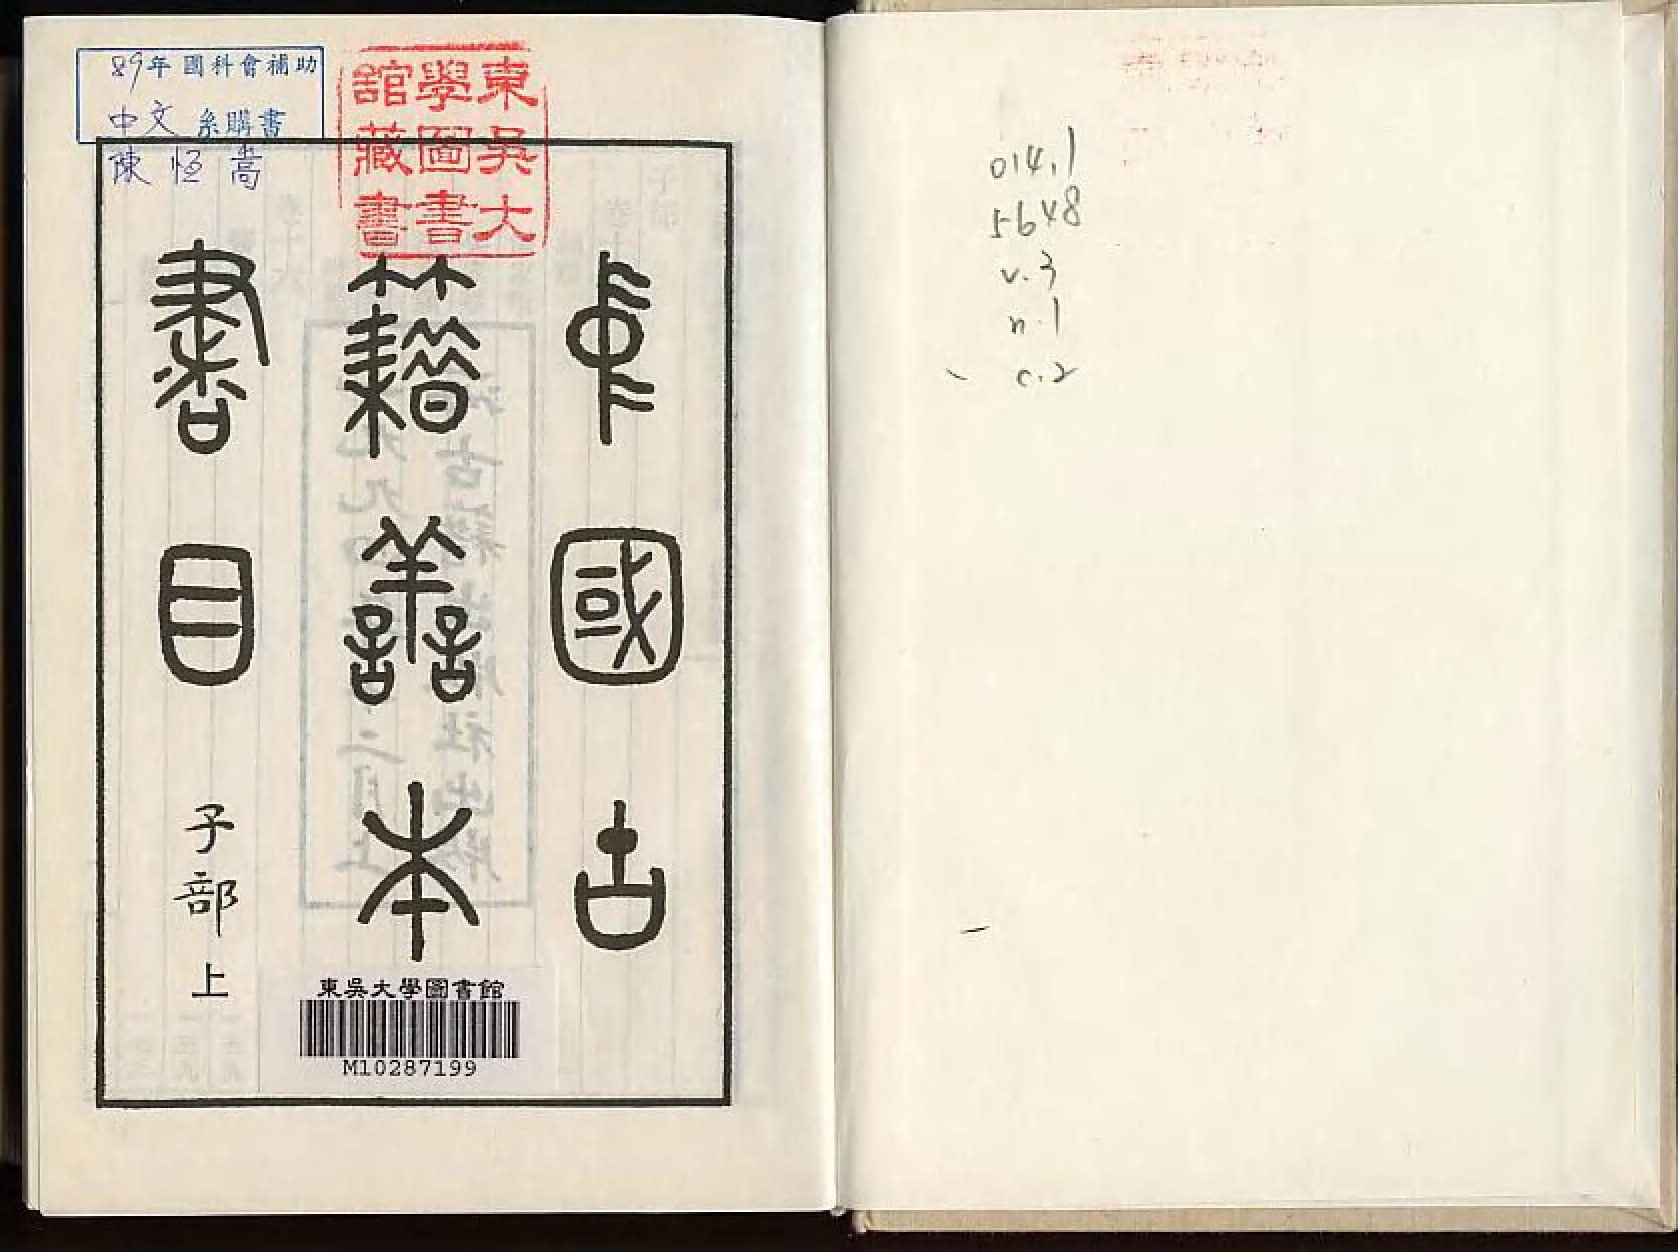 89年國科會補助
中文系購書
陳恆嵩
東吳大
學圖書
館藏書
中國古
籍善本
書目
子部上
東吳大學圖書館
M10287199
014.1
5648
v.3
n.1
c.2